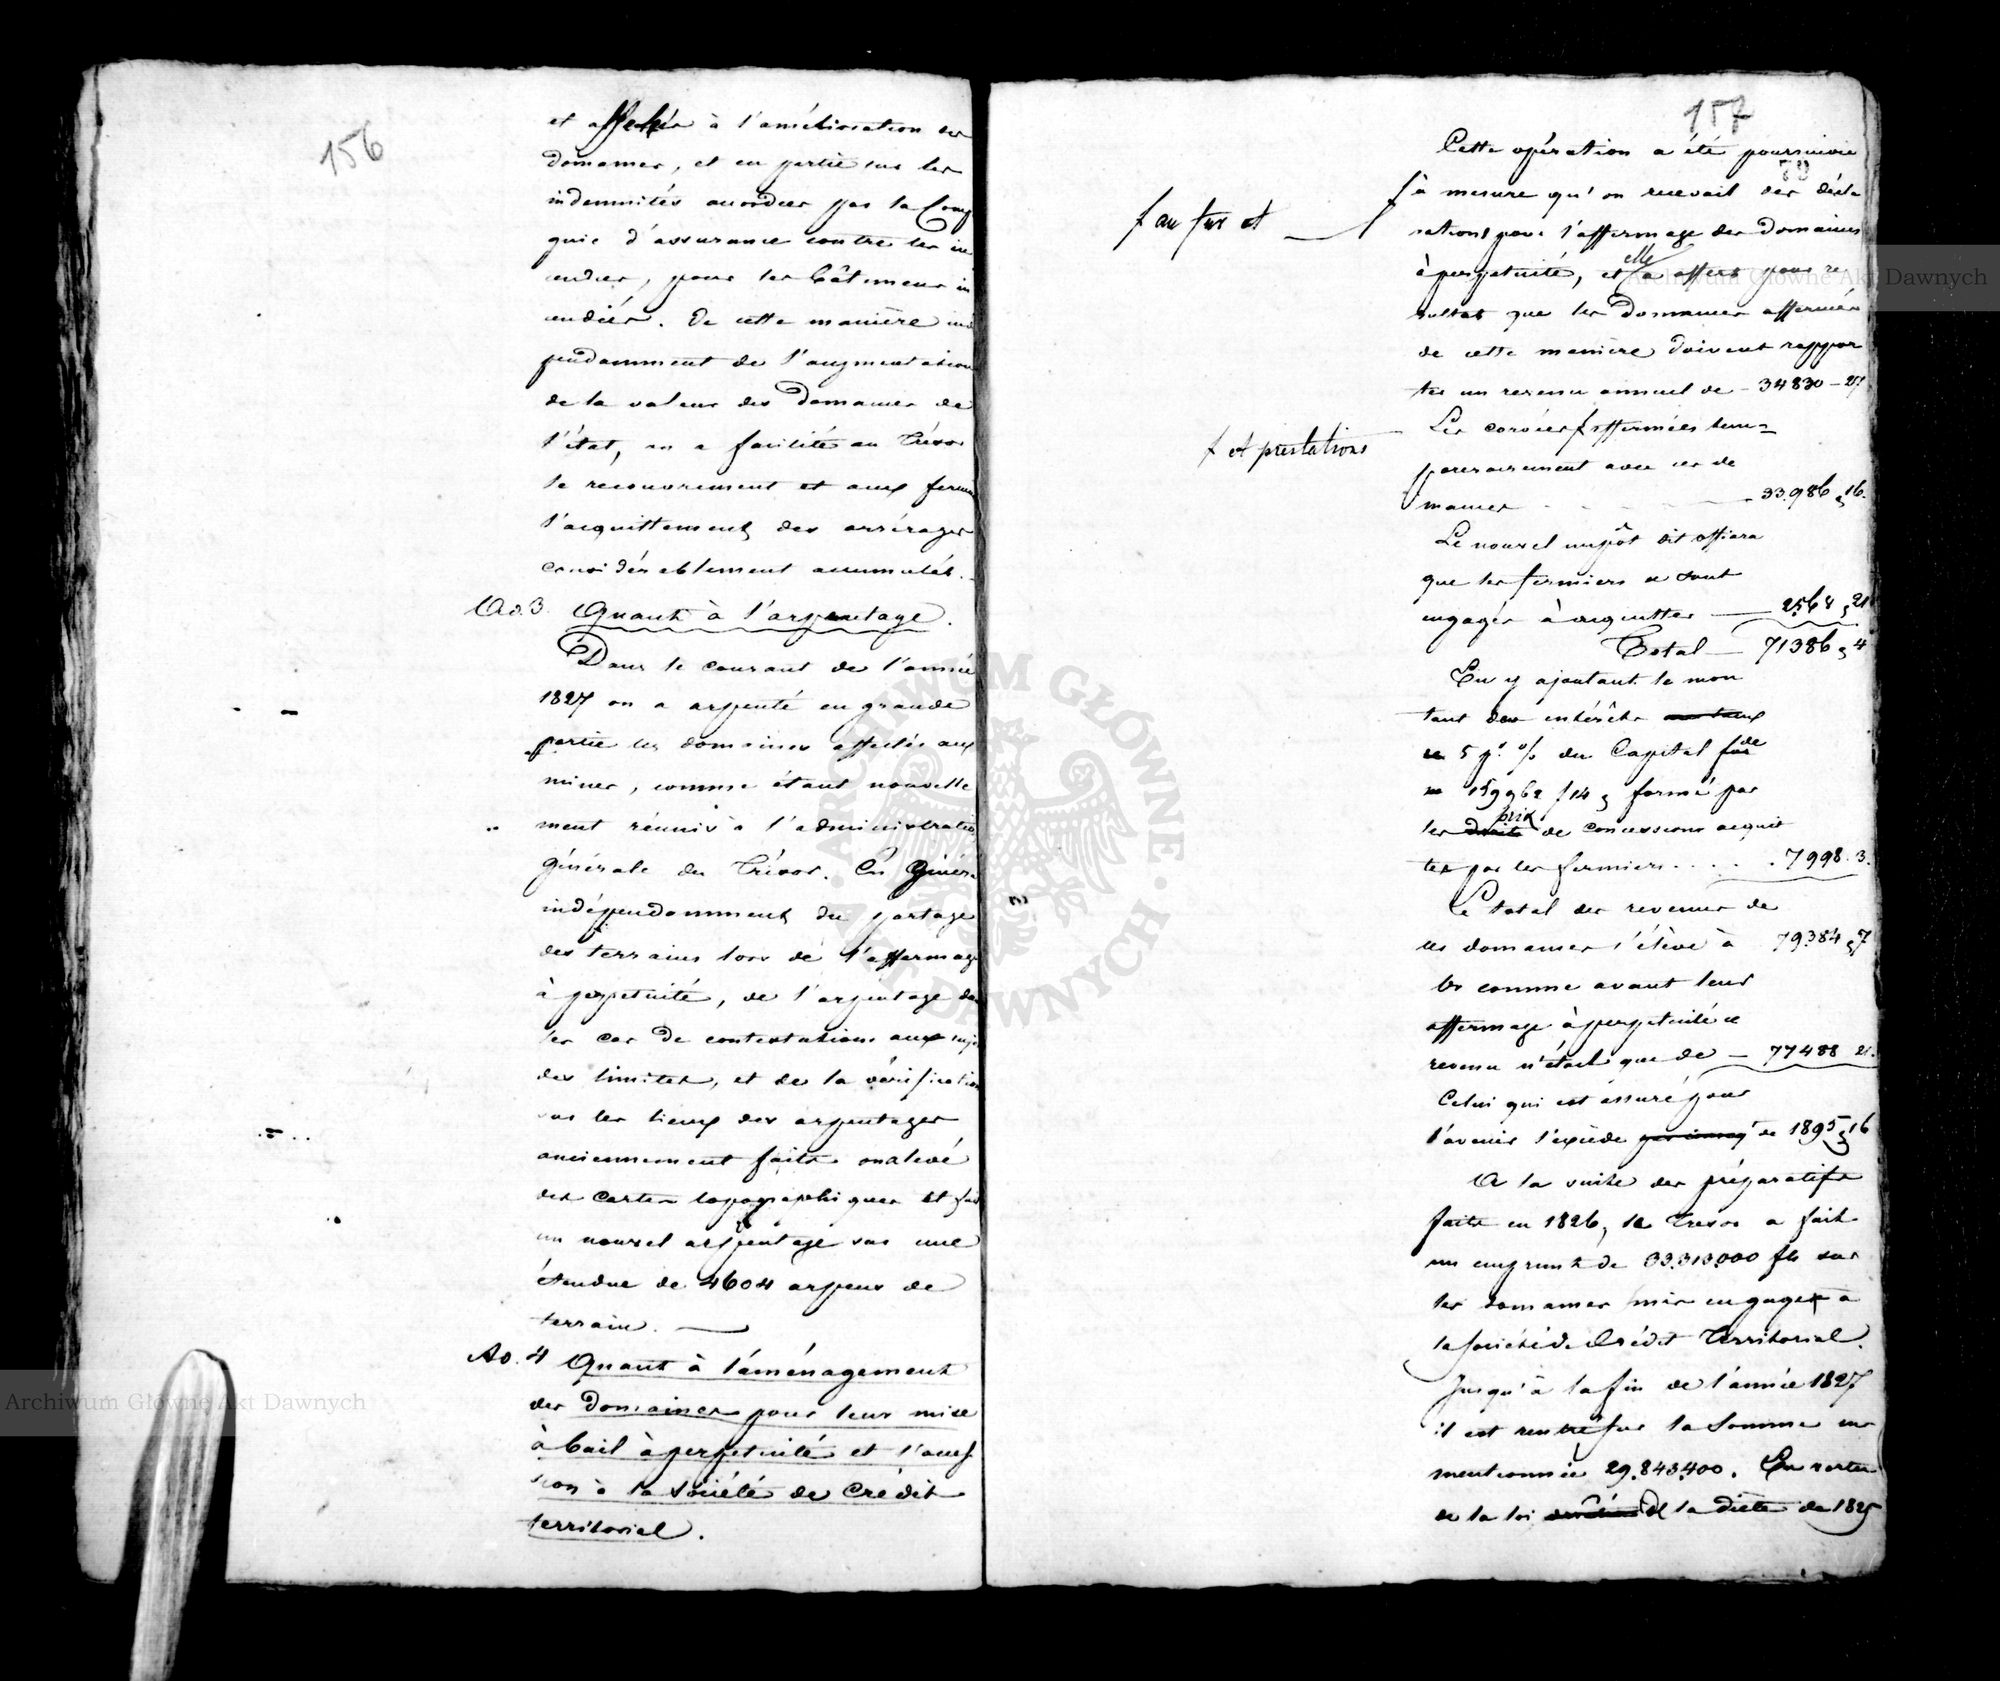 156
et affectés à l'amélioration des
domaines, et en partie sur les
indemnités accordées par la Com
gnie d'assurance contre les in
cendies, pour les bâtimens in
cendiés. De cette manière ind
pendamment de l'augmentation
de la valeur des Domaines de
l'état, on a facilité au Trésor
le recouvrement et aux ferm
l'acquittement des arrérages
considérablement accumulés.
Ad. 3 Quant à l'arpentage.
Dans le courant de l'année
1827 on a arpenté en grande
partie les domaines affectés aux
mines, comme étant nouvelle
ment réunis à l'administration
générale du Trésor. En génér
indépendamment du partage
des terrains lors de l'affermage
à perpetuité, de l'arpentage da
les cas de contestations aux suje
des limites, et de la vérification
sur les lieux des arpentages
anciennement faits on a levé
des cartes topographiques et fai
un nouvel arpentage sur une
étendue de 4604 arpens de
terrain.
Ad. 4 Quant à l'aménagement
des domaines pour leur mise
à bail à perpetuité et l'acces
sion à la société de Crédit
territorial.
157
79
Cette opération a été poursuivie
f au fur et
à mesure qu'on recevait des décla
rations pour l'affermage des Domaines
à perpetuité, et elle a offert pour ré
sultat que les Domaines affermés
de cette manière doivent rappor
ter un revenu annuel de - 34830 - 27
f et prestations
Les corvées f affermées tem=
porairement avec ces do
maines 33.986 " 16.
Le nouvel impôt dit offiara
que les fermiers se sont
engagés à acquitter 2568 " 21
Total 71386 " 4
En y ajoutant le mon
tant des intérêts
5 pr. % du Capital de
159962 f 14 " formé par
les prix de concessions acquit
tés par les fermiers . . . . 7998. 3.
Le total des revenus de
ces domaines s'élève à 79384 " 7
Or comme avant leur
affermage à perpetuité ce
revenu n'était que de - 77488 21.
Celui qui est assuré pour
l'avenir l'excède de 1895 " 16
A la suite des préparatifs
faits en 1826, le Tresor a fait
un emprunt de 33.313.000 fls sur
les domaines mis en gages à
la société de Crédit Territorial.
Jusqu'à la fin de l'année 1827
il est rentré sur la somme sus
mentionnée 29.843.400. En vertu
de la loi de la diète de 1825